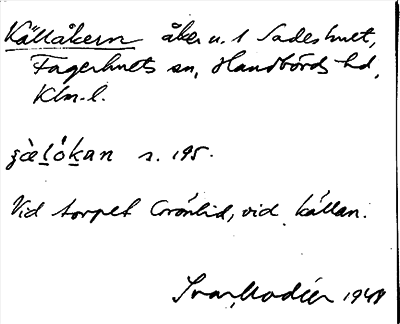 Källåkern åker u. 1 Sadeshult,
Fagerhults sn, Handbörds hd,
Klm. l.
s. 195.
Vid torpet Grönlid, vid källan.
Ivar Modéer 1948